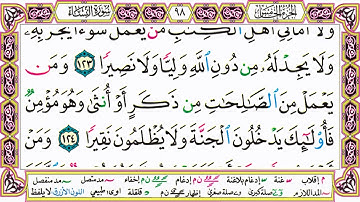 الجزء الخامس ٩٨ سورة النساء
وَلَا أَمَانِيِّ أَهْلِ الْكِتَٰبِ مَن يَعْمَلْ سُوءًا يُجْزَ بِهِ
وَلَا يَجِدْ لَهُ مِن دُونِ اللَّهِ وَلِيًّا وَلَا نَصِيرًا ١٢٣ وَمَن
يَعْمَلْ مِنَ الصَّٰلِحَٰتِ مِن ذَكَرٍ أَوْ أُنثَىٰ وَهُوَ مُؤْمِنٌ
فَأُولَٰئِكَ يَدْخُلُونَ الْجَنَّةَ وَلَا يُظْلَمُونَ نَقِيرًا ١٢٤ وَمَنْ